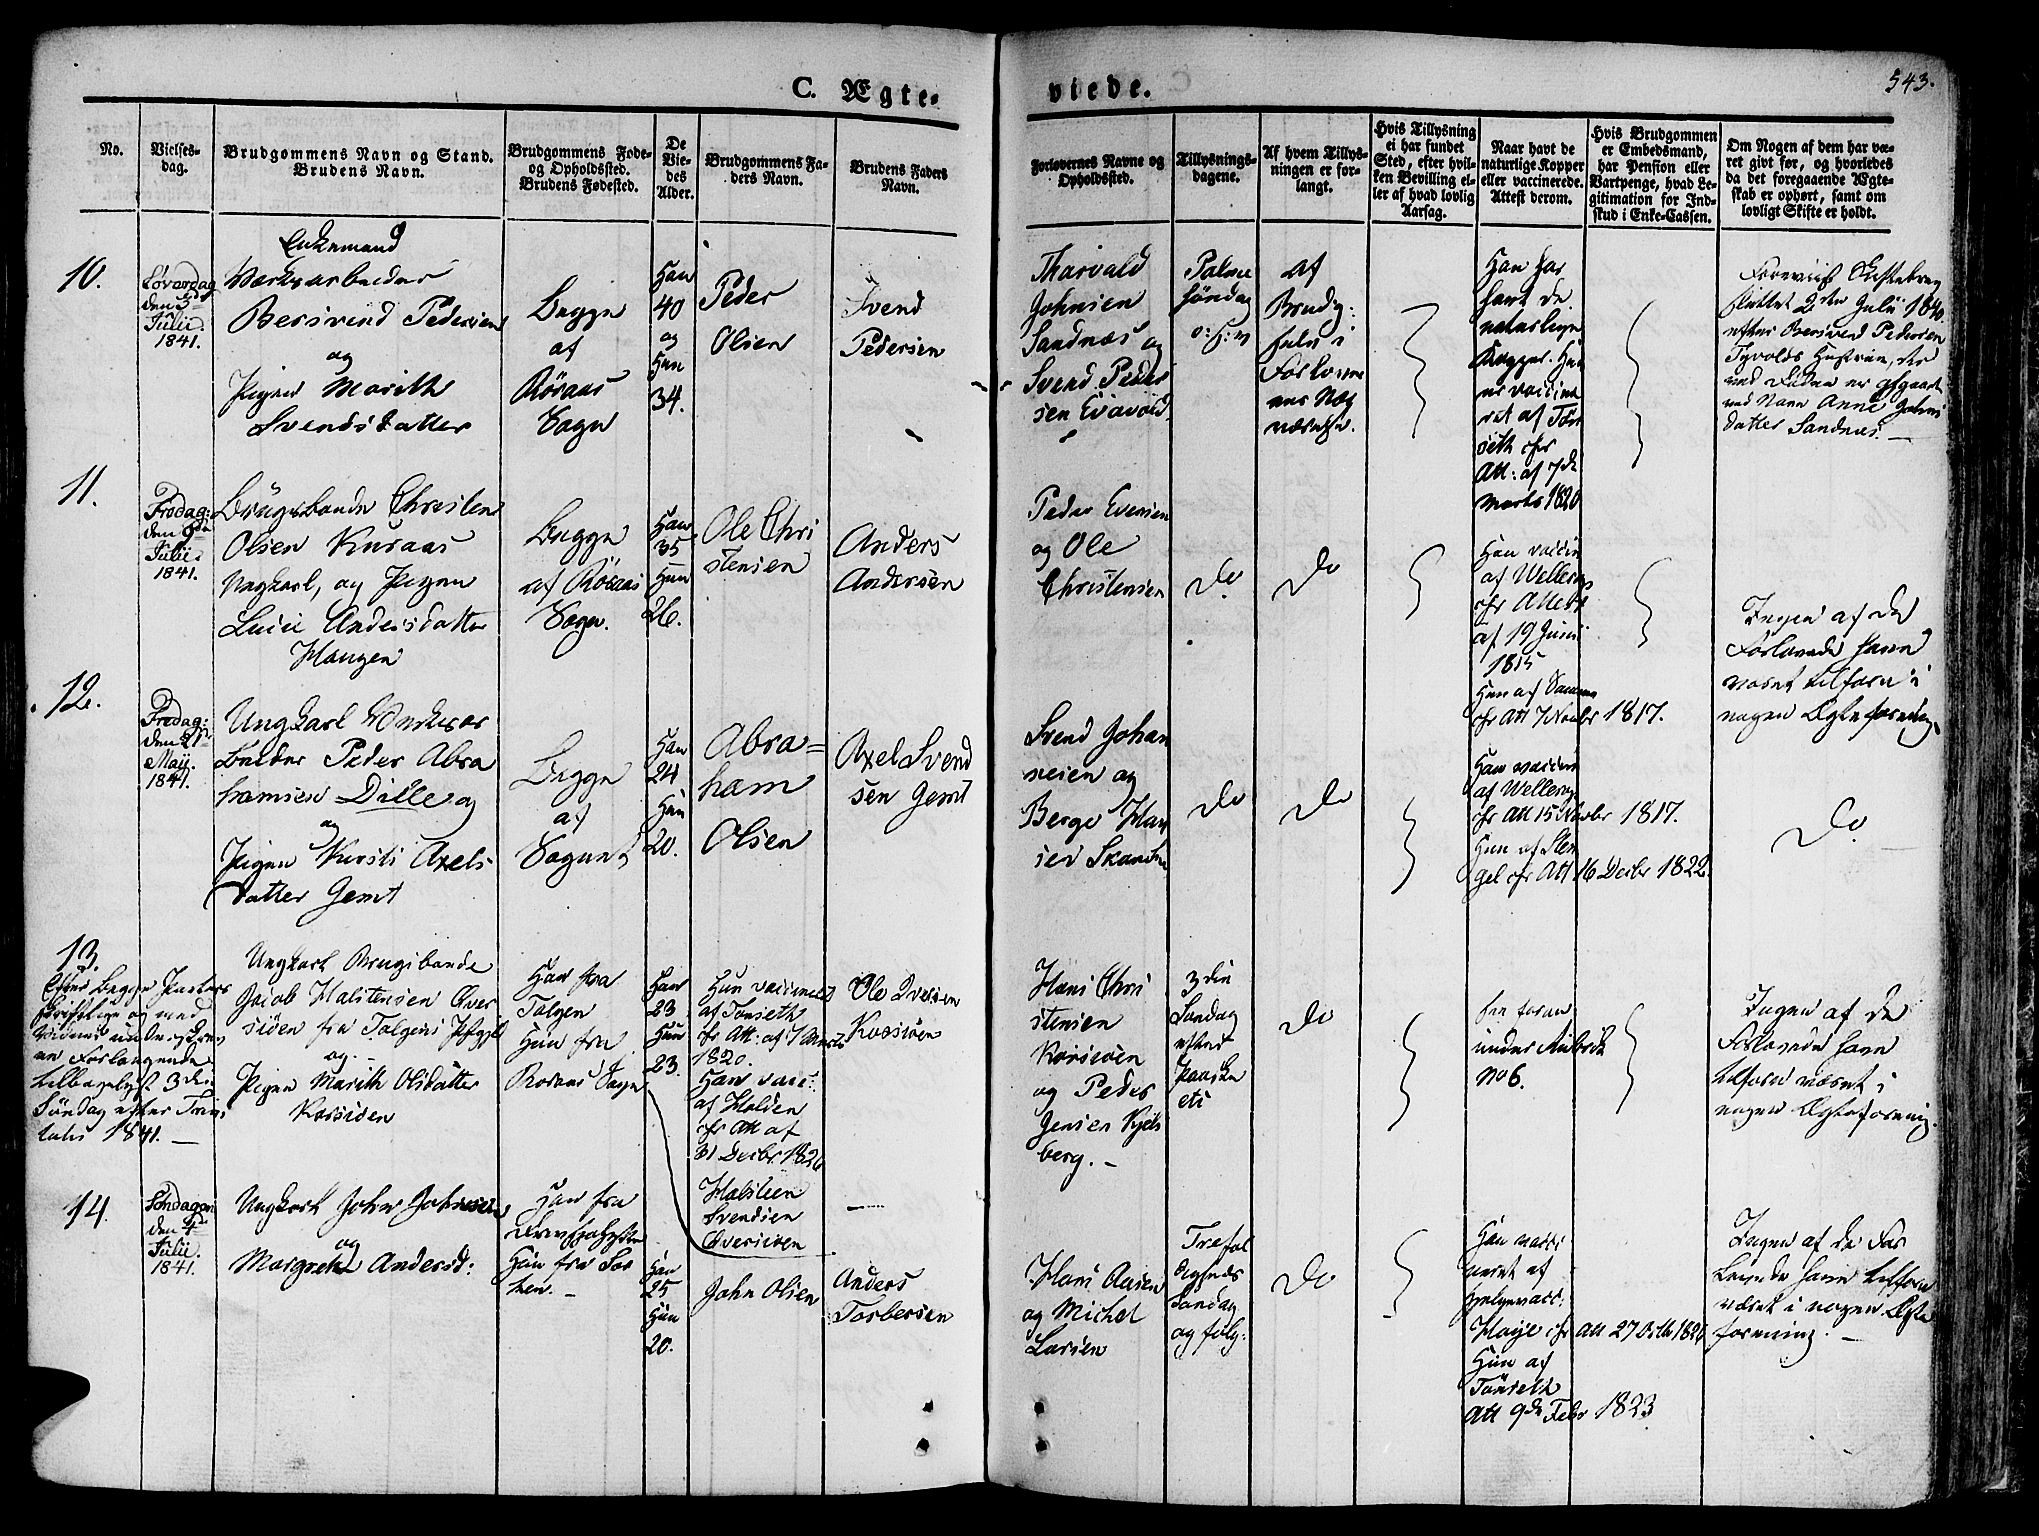 C. Ægte-
viede.
543.
No.
Vielses-
dag.
Brudgommens Navn og Stand.
Brudens Navn.
Brudgommens Føde-
og Opholdssted.
Brudens Fødested.
De
Vie-
des
Alder.
Brudgommens Fa-
ders Navn.
Brudens Faders
Navn.
Forlovernes Navne og
Opholdssted.
Tillysnings-
dagene.
Af hvem Tillys-
ningen er for-
langt.
Hvis Tillysning
ei har fundet
Sted, efter hvil-
ken Bevilling el-
ler af hvad lovlig
Aarsag.
Naar havt de
naturlige Kopper
eller vaccinerede.
Attest derom.
Hvis Brudgommen
er Embedsmand,
har Pension eller
Vartpenge, hvad Le-
gitimation for Ind-
skud i Enke-Cassen.
Om Nogen af dem har væ-
ret givt før, og hvorledes
da det foregaaende Ægte-
skab er ophørt, samt om
lovligt Skifte er holdt.
10.
Løverdag
den 3d
Julii.
1841.
Enkemand
Værksarbeider
Bersvend Pedersen
og
Pigen Marith
Svendsdatter
Begge
af
Røraas
Sogn
Han
40
og
Hun
34.
Peder
Olsen
Svend
Pedersen
Thorvald
Johnsen
Sandnæs og
Svend Peder
sen Evavold.
Palme
Søndag
Af
Brudg:
Forlovere
nes Næ
værelse.
Han har
havt de
naturlige
Kopper. Hun
er vaccine
ret af Tøn
seth cfr
Att: af 7de
Marts 1820
Foreviist Skiftebrev
sluttet 2den Julii 1840
efter Bersvend Pedersen
Tyvolds Hustrue, der
ved Døden er afgaaet
ved Navn Anne Johns
datter Sandnæs. —
11.
Fredag:
den 9de
Julii.
1841.
Brugsbonde Christen
Olsen Kuraas
Ungkarl, og Pigen
Lucie Andersdatter
Haugen
Begge
af Røraas
Sogn.
Han
35
Hun
26.
Ole Chri
stensen
Anders
Andersen
Peder Evensen
og Ole
Christensen
Do
Do
Han vaccin
af Wellerop
cfr Attest
af 19 Junii
1815
Hun af Samme
cfr Att 7 Novbr 1817.
Ingen af de
Forlovede have
været tilforn i
nogen Ægteforening.
12.
Fredag:
den 21de
Maii.
1841.
Ungkarl Værksar
beider Peder Abra
hamsen Dille og
og
Pigen Kirsti Axels
datter Gemt
Begge
af
Sognet
Han
24
Hun
20.
Abra=
ham
Olsen
Axel Svend
sen Gemt
Svend Johan
nesen og
Berge Han
sen Skancke
Do
Do
Han vaccin
af Wellerop
cfr Att 15 Novbr 1817.
Hun af Sten
gel cfr Att 16 Decbr 1822.
Do
13.
Efter begge Parters
skriftlige og med
Vidner underskrev
en Forlangende
tilbagelyst 3die
Søndag efter Trini
tatis 1841. —
Ungkarl Brugsbonde
Jacob Halstensen Øver
siøen fra Tolgens Præstegj
og
Pigen Marith Olsdatter
Korssiøen
Han fra
Tolgen
Hun fra
Røraas Sogn
Han
23
Hun
23.
Hun vaccineret
af Tønseth
cfr Att: af 7 Marts
1820.
Han vacc:
af Holden
cfr Att af
31 Decbr. 1820
Halsteen
Svendsen
Øversiøen
Ole Iversen
Korssiøen
Hans Chri
stensen
Korssiøen
og Peder
Jensen Kjels
berg. —
3die
Søndag
efter
Paaske
etc
Do
See foran
under Rubrik
No 6.
Ingen af de
Forlovede have
tilforn været i
nogen Ægteforening.
14.
Søndagen
den 4de
Julii.
1841.
Ungkarl John Johnsen
og
Margrethe Andersd:
Han fra
Hun fra So
knen. —
Han
25
Hun
20.
John Olsen
Anders
Torbersen
Hans Aasen
og Michel
Larsen
Trefol
digheds
Søndag
og følg:
Do
Han vacci
neret af
Hjelpevacc:
Høye cfr Att 27 Octbr 1820
Hun af
Tønseth
Att 9de Febr 1823
Ingen af de For
lovede have tilforn
været i nogen Ægte
forening. —